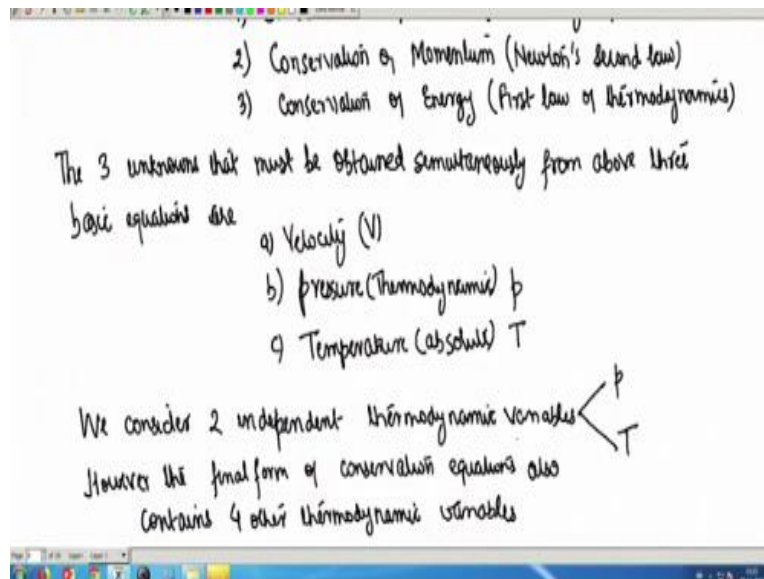 2) Conservation of Momentum (Newton's Second law)
3) Conservation of Energy (First law of thermodynamics)
The 3 unknowns that must be obtained simultaneously from above three
basic equations are
a) Velocity (V)
b) pressure (Thermodynamic) p
c) Temperature (absolute) T
We consider 2 independent thermodynamic variables p
T
However the final form of conservation equations also
contains 4 other thermodynamic variables